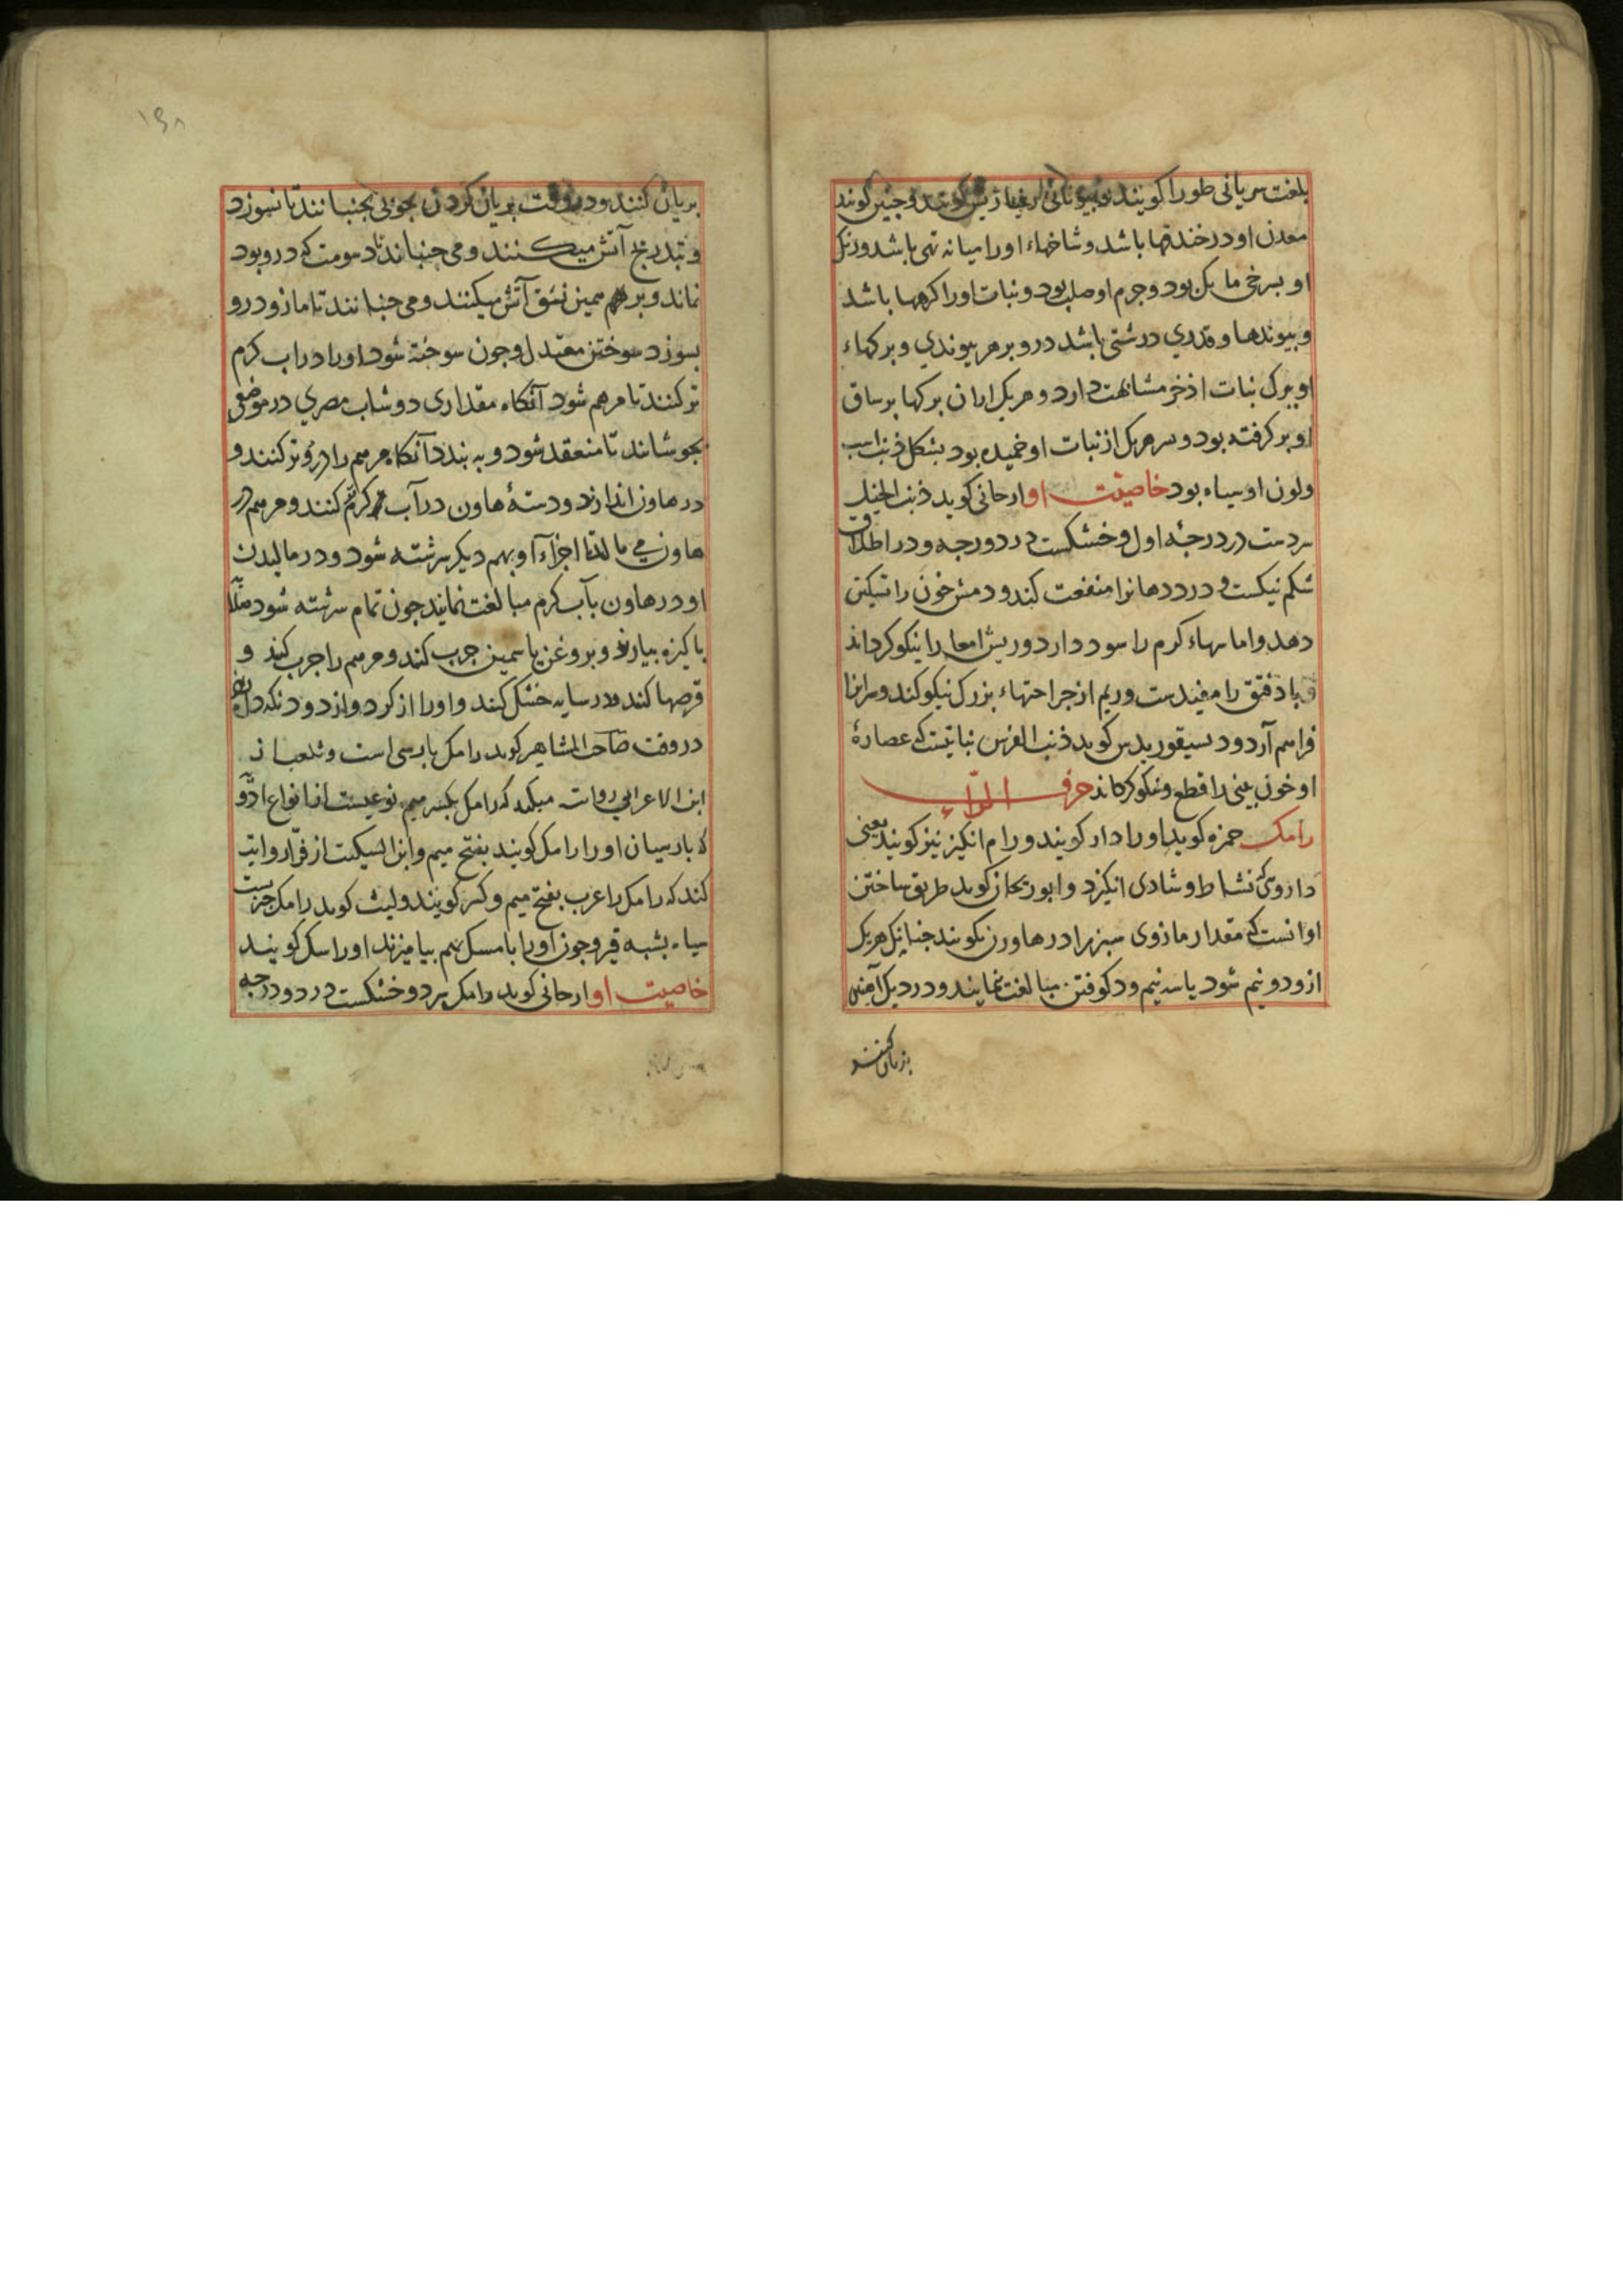 بلغت سریانی طورا کویند و بیونانی کویند و جنین کویند
معدن او در خندقها باشد و شاخهاء او را میانه تهی باشد و رنک
او بسرخی مایل بود و جرم او صلب بود و نبات او را کرهها باشد
و بیوندها و قدری درشتی باشد درو بر هر بیوندی و برکهاء
او ببرک نبات اذخر مشابهت دارد و هریک ازان برکها بر ساق
او بر کرفته بود و سر هریک از نبات او خمیده بود بشکل ذنب اسب
و لون او سیاه بود خاصیت او ارجانی کوید ذنب الخیل
سردست در درجهٔ اول و خشکست در دو درجه و در اطلاق
شکم نیکست و درد دهانرا منفعت کند و دمش خون را تسکین
دهد و اماسهاء کرم را سود دارد و ریش امعا را نیکو کرداند
و باد فتق را مفیدست و ریم از جراحتهاء بزرک نیکو کند و سرانرا
فراهم آرد و دیسقوریدس کوید ذنب الفرس نباتیست که عصارهٔ
او خون بینی را قطع و نیکو کرداند حرف الرّاء
رامک حمزه کوید او را دار کویند و رام انکیز نیز کویند یعنی
داروی که نشاط و شادی انکیزد و ابو ریحان کوید طریق ساختن
او انست که مقدار مازوی سبز را در هاون بکوبند جنانک هریک
ازو دو نیم شود یا سه نیم و در کوفتن مبالغت نمایند و در دیک آهنی
بریان کنند
بریان کنند و در وقت بریان کردن بجوبی بجنبانند تا نسوزد
و بتدریج آتش میکنند و می جنبانند تا دسومت که درو بود
نماند و بر همین نسق آتش میکنند و می جنبانند تا مازو درو
بسوزد سوختن معتدل و جون سوخته شود او را در اب کرم
تر کنند تا مرهم شود آنکاه مقداری دوشاب مصری در موضعی
بجوشانند تا منعقد شود و به بندد آنکاه مرهم را درو تر کنند و
در هاون اندازند و دستهٔ هاون در آب کرم تر کنند و مرهم در
هاون می مالند تا اجزاء او بهم دیکر سرشته شود و در مالیدن
او در هاون بآب کرم مبالغت نمایند جون تمام سرشته شود صلایهٔ
باکیزه بیارند و بروغن یاسمین جرب کند و مرهم را جرب کنند و
قرصها کند و در سایه خشک کنند و او را از کرد و از دود نکه دارند
در وقت صاحب المشاهیر کوید رامک بارسی است و ثعلب از
ابن الاعرابی روایت میکند که رامک بکسر میم نوعیست از انواع ادویه
که بارسیان او را رامک کویند بفتح میم و ابن السکیت از فرّا روایت
کند که رامک را عرب بفتح میم و کسر کویند و لیث کوید رامک جیزیست
سیاه بشبه قیر و جون او را با مسک بهم بیامیزند او را سک کویند
خاصیت او ارجانی کوید رامک سرد و خشکست در دو درجه